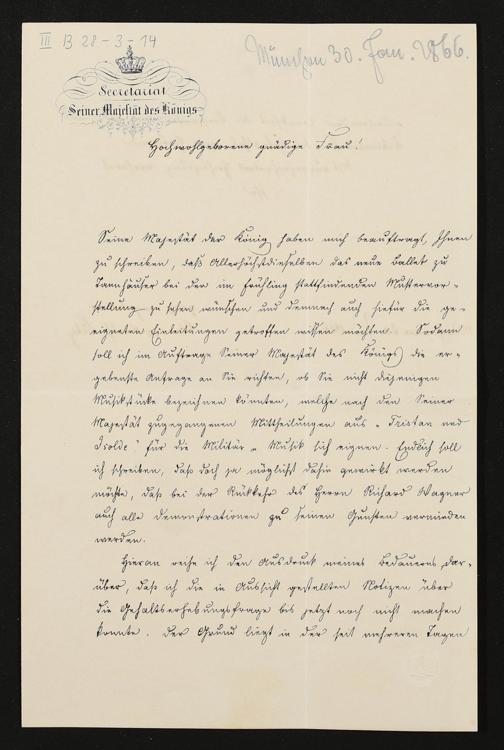 III B 28-3-14
München 30. Jan. 1866.
Secretariat
Seiner Majestät des Königs
Hochwohlgeborene gnädige Frau!
Seine Majestät der König haben mich beauftragt, Ihnen
zu schreiben, daß Allerhöchstdieselben das neue Ballet zu
Tannhäuser bei der im Frühling stattfindenden Mustervor-
stellung zu sehen wünschen und demnach auch hiefür die ge-
eigneten Einleitungen getroffen wissen möchten. Sodann
soll ich im Auftrage Seiner Majestät des Königs die er-
gebenste Anfrage an Sie richten, ob Sie nicht diejenigen
Musikstücke bezeichnen könnten, welche nach den Seiner
Majestät zugegangenen Mittheilungen aus "Tristan und
Isolde" für die Militär-Musik sich eignen. Endlich soll
ich schreiben, daß doch ja möglichst dahin gewirkt werden
möchte, daß bei der Rückkehr des Herrn Richard Wagner
auch alle Demonstrationen zu seinen Gunsten vermieden
werden.
Hieran reihe ich den Ausdruck meines Bedauerns dar-
über, daß ich die in Aussicht gestellten Notizen über
die Gehaltserhebungsfrage bis jetzt noch nicht machen
konnte. Der Grund liegt in der seit mehreren Tagen